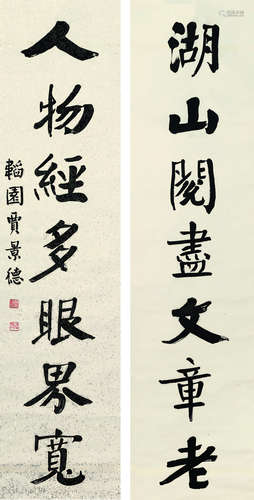 湖山閱盡文章老
人物經多眼界寬
韜園賈景德